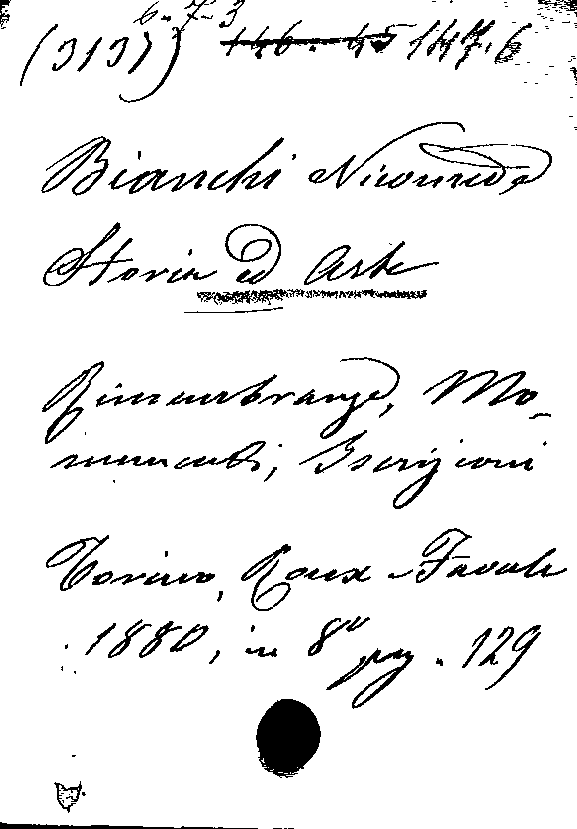 6-7-3
(3137) 146.45 147.6
Bianchi Nicomede
Storia ed Arte
Rimembranze, Mo-
numenti, Iscrizioni
Torino, Roux e Favale
1880, in 8° pag. 129